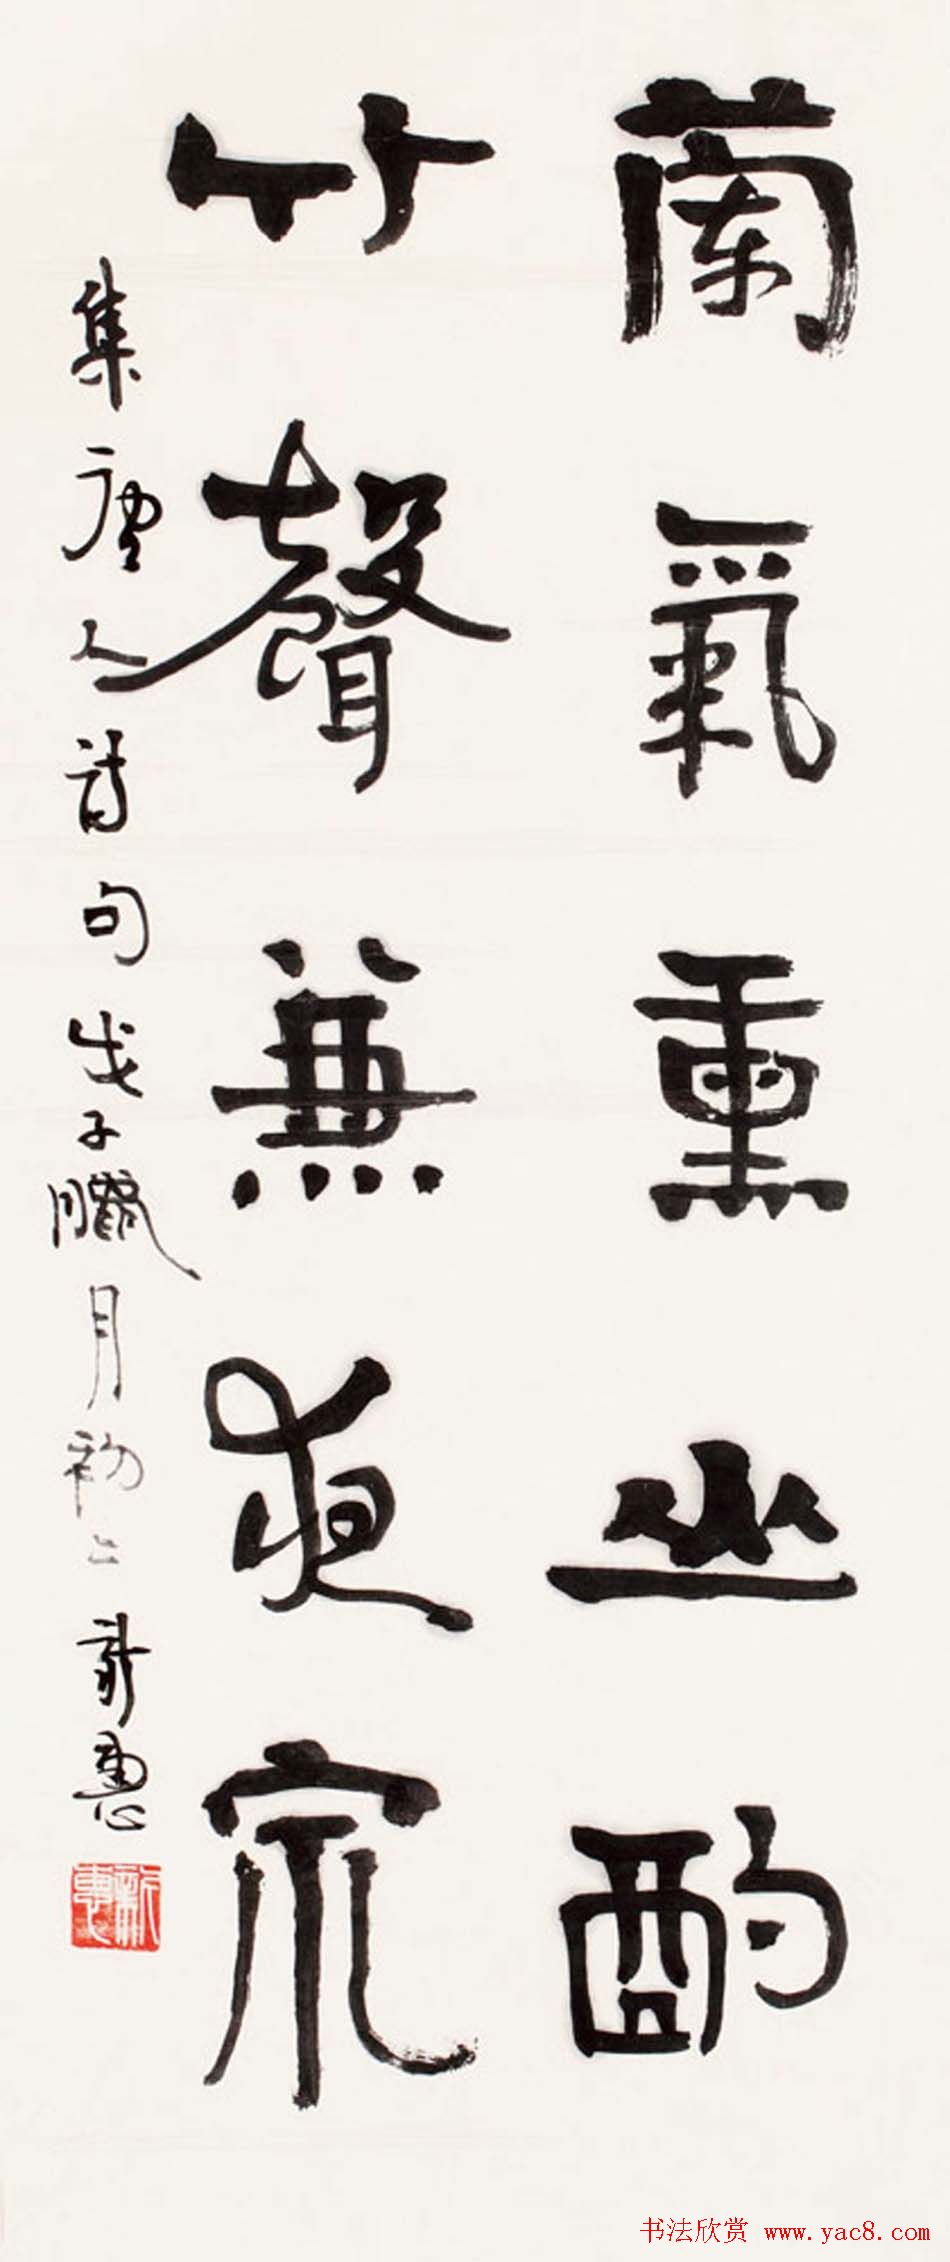 蘭氣熏山酌
竹聲兼夜泉
集唐人詩句戊子臘月初二新惠
新惠
书法欣赏 www.yac8.com